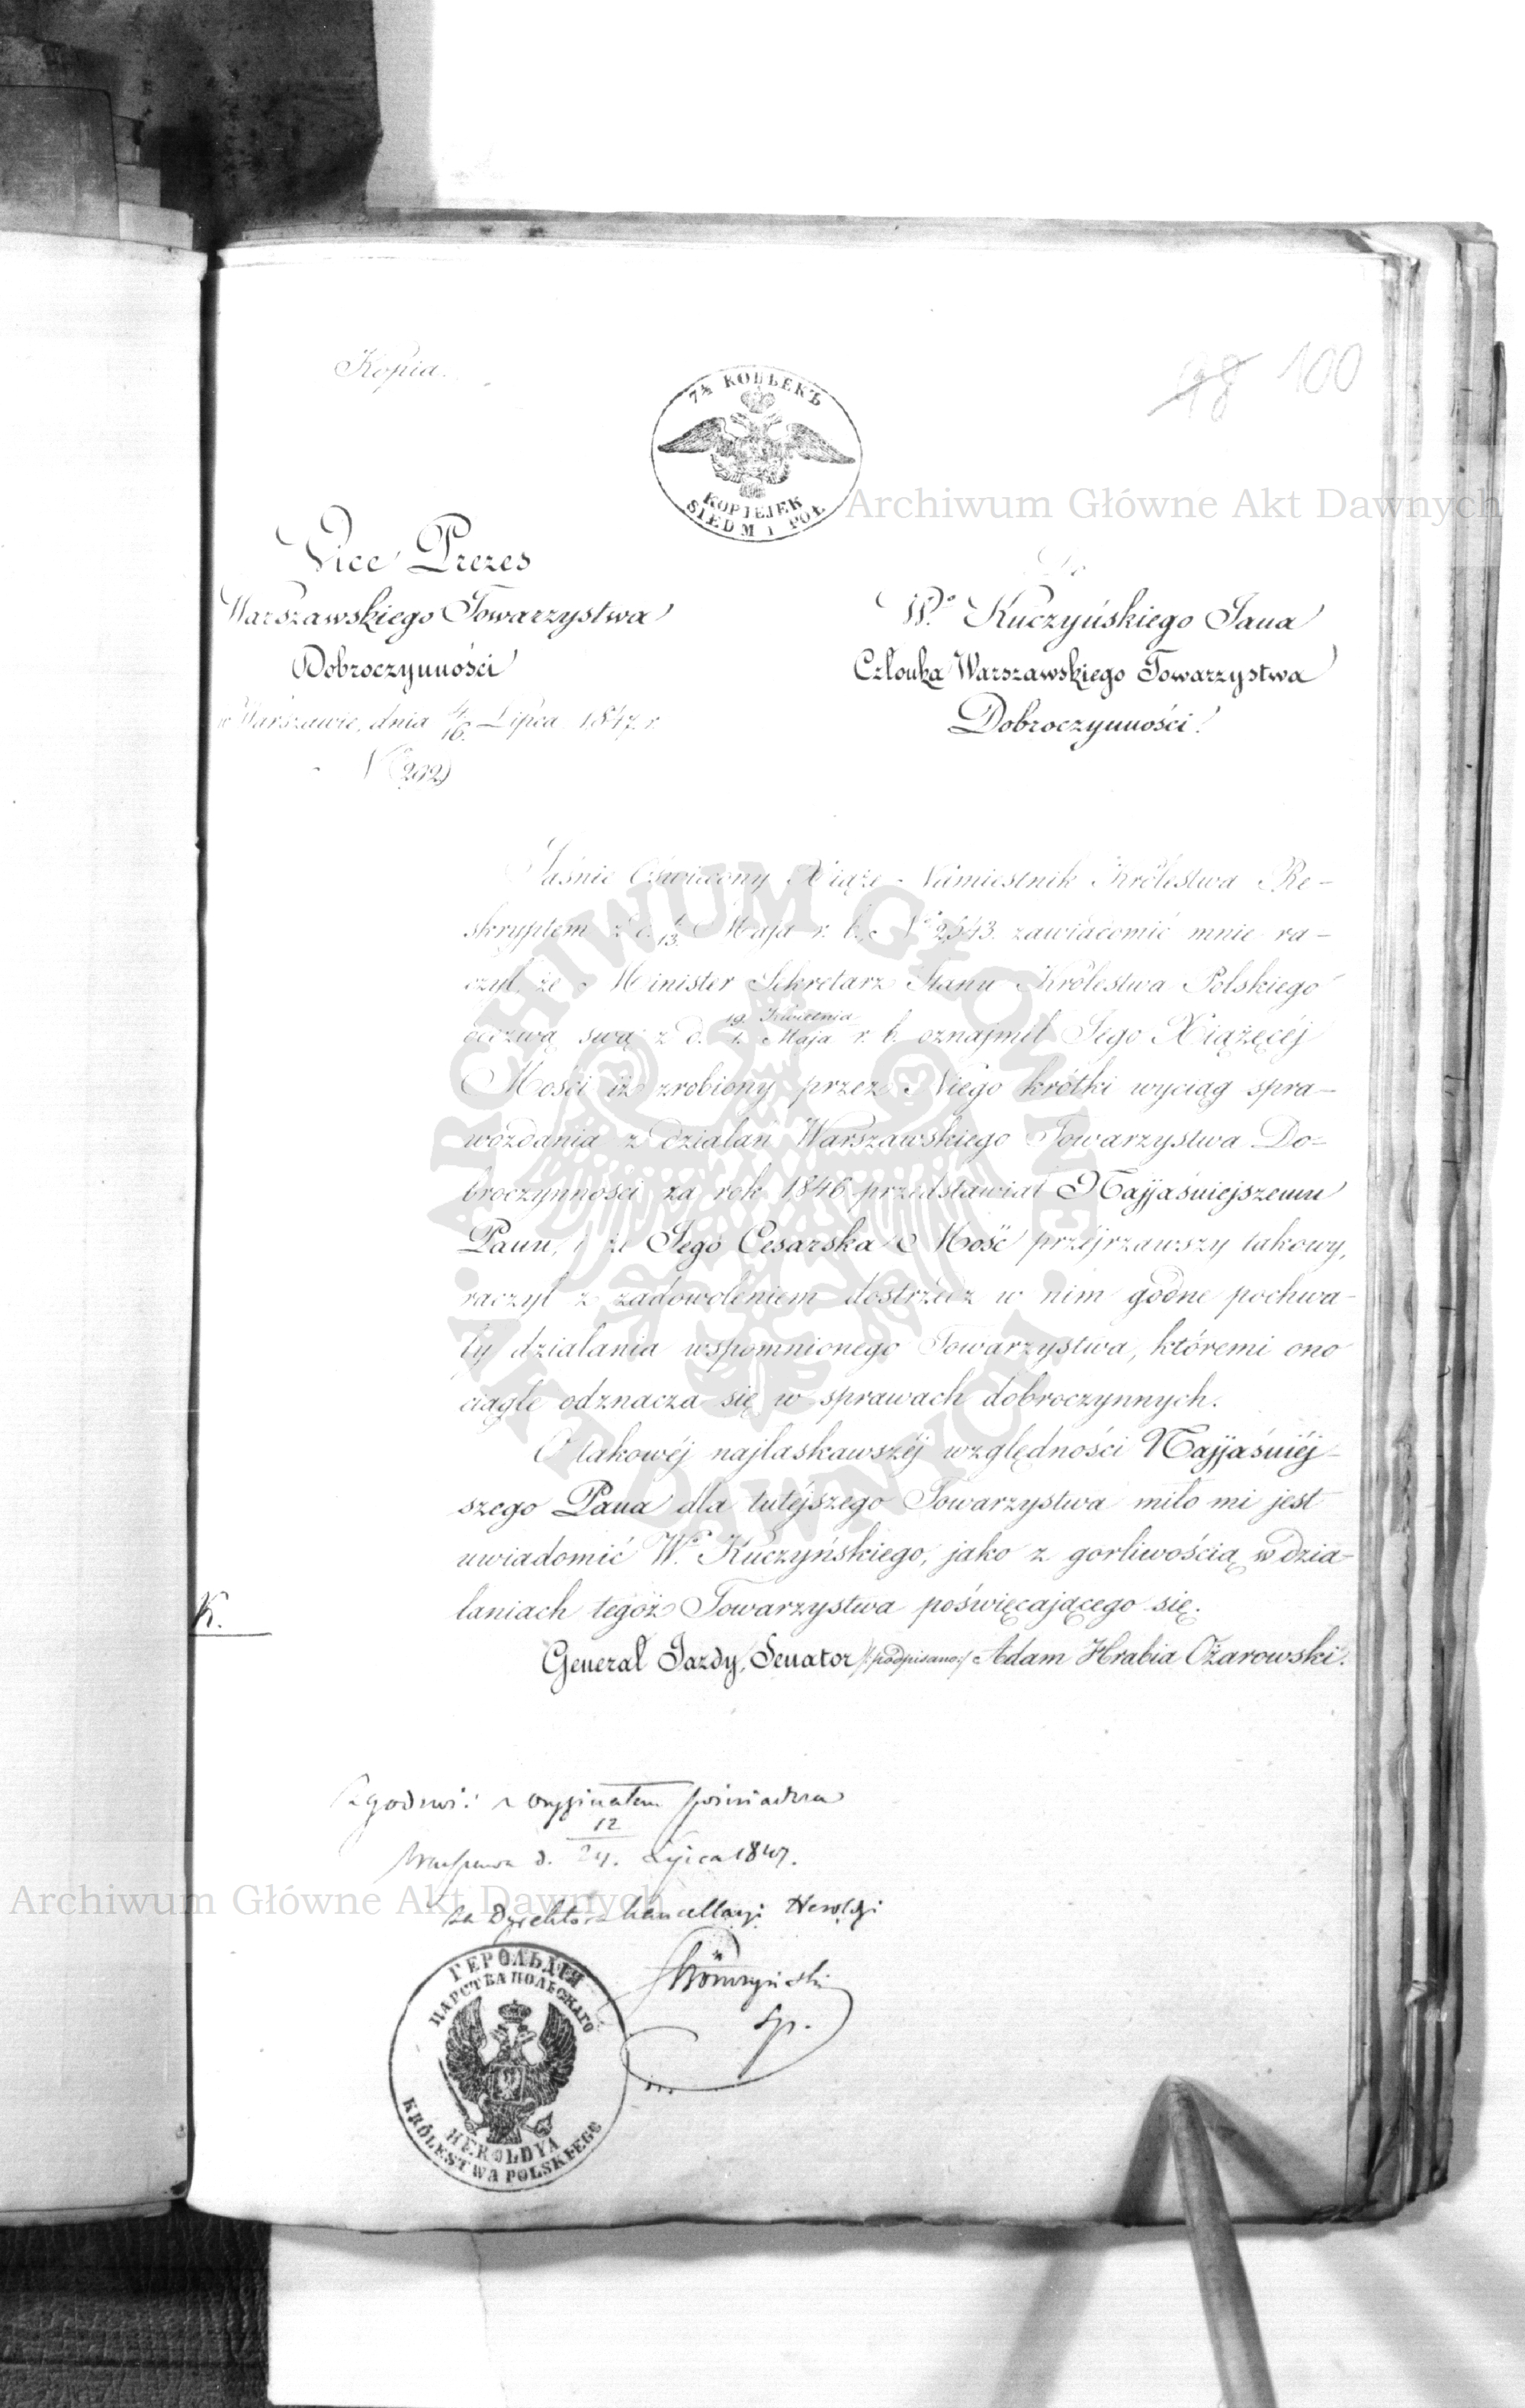 Kopia.
98 100
7½ КОПѢЕКЪ
KOPIEJEK
SIEDM I PÓŁ
Archiwum Główne Akt Dawnych
Vice Prezes
Warszawskiego Towarzystwa
Dobroczynności
w Warszawie, dnia 4/16. Lipca 1847. r.
No 292
Do
Wo. Kuczyńskiego Jana
Członka Warszawskiego Towarzystwa
Dobroczynności.
Jaśnie Oświecony Xiąże-Namiestnik Królestwa Re-
skryptem z d. 1/13. Maja r. b. No 2643. zawiadomić mnie ra-
czył, że Minister Sekretarz Stanu Królestwa Polskiego
odezwą swą z d. 19. Kwietnia/1. Maja r. b. oznajmił Jego Xiążęcéj
Mości iż zrobiony przez Niego krótki wyciąg spra-
wozdania z działań Warszawskiego Towarzystwa Do-
broczynności za rok 1846 przedstawiał Najjaśniejszemu
Panu, i że Jego Cesarska Mość przejrzawszy takowy,
raczył z zadowoleniem dostrzedz w nim godne pochwa-
ły działania wspomnionego Towarzystwa, któremi ono
ciągle odznacza się w sprawach dobroczynnych.
O takowéj najłaskawszéj względności Najjaśniéj-
szego Pana dla tutéjszego Towarzystwa miło mi jest
uwiadomić Wo. Kuczyńskiego, jako z gorliwością w dzia-
łaniach tegoż Towarzystwa poświęcającego się.
K.
Generał Jazdy, Senator /:podpisano:/ Adam Hrabia Ożarowski.
Zgodność z oryginałem poświadcza
Warszawa d. 12/24. Lipca 1847.
Archiwum Główne Akt Dawnych
za Dyrektora Kancellaryi Heroldyi
ГЕРОЛЬДІЯ
ЦАРСТВА ПОЛЬСКАГО
HEROLDYA
KRÓLESTWA POLSKIEGO
ARCHIWUM GŁÓWNE
AKT DAWNYCH